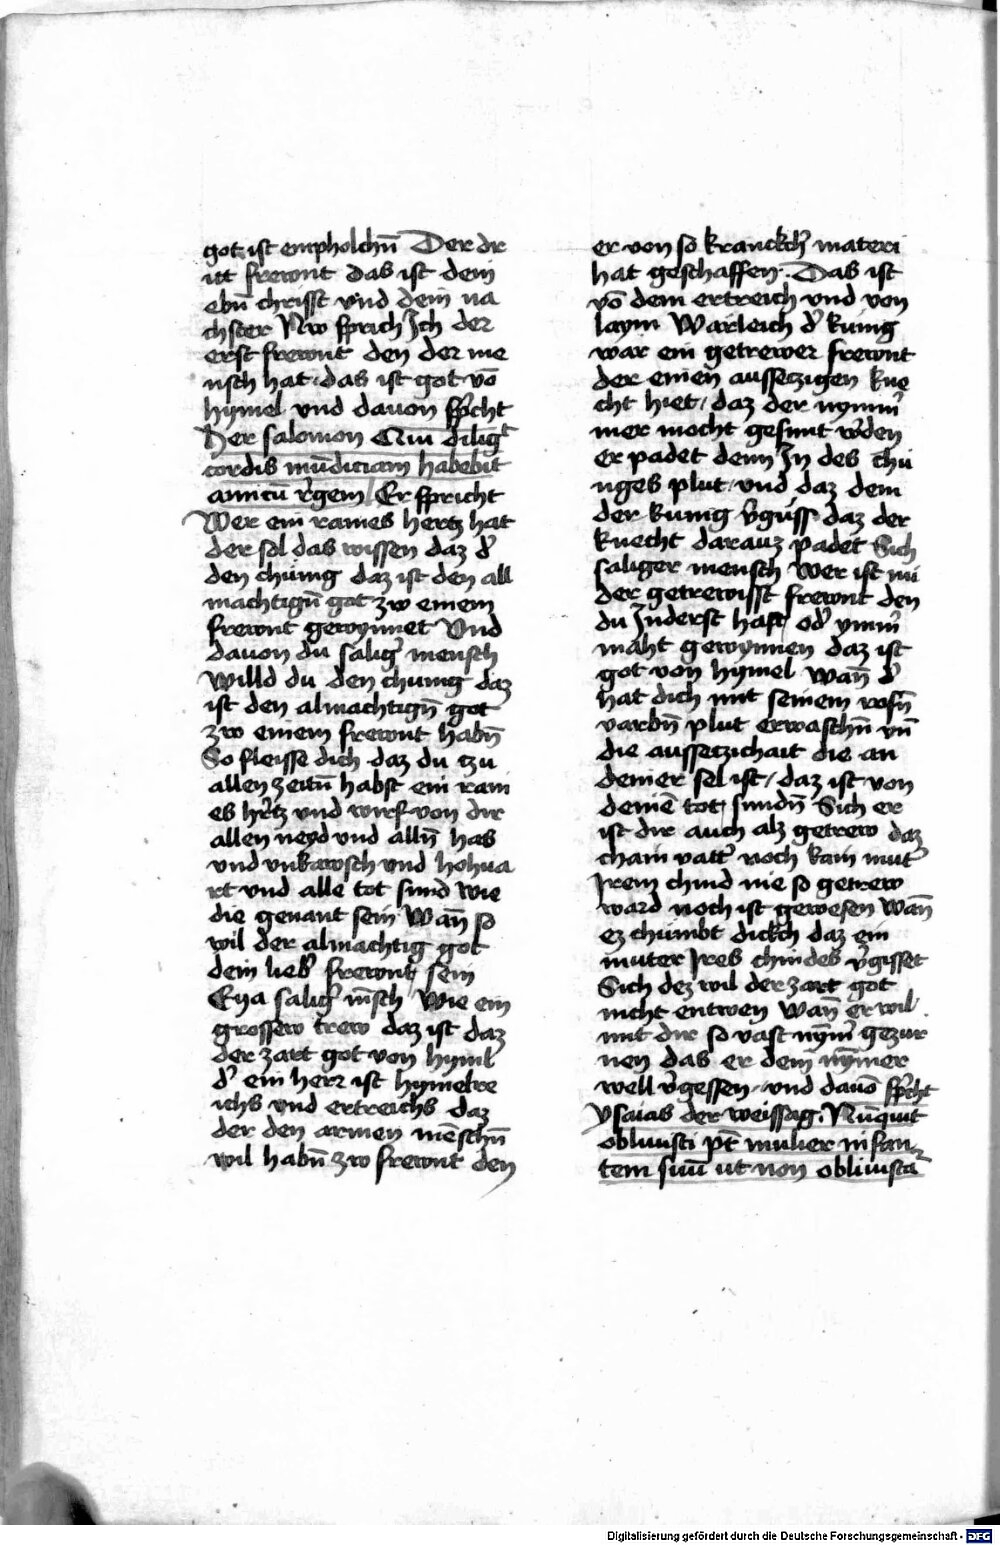 got ist empholchn̄ Der dr
itt frewnt das ist dem
ebn̄ christ vnd dein na
chster Nw sprich Jch der
erst frewnt den der me
nsch hat das ist got vō
hymel vnd dauon sp̄icht
Her salomon Qui dilig̉t
cordis mūdiciam habebit
amicū r̉gem Er spricht
Wer ein raines hertz hat
der sol das wissen daz d̉
den chünig daz ist den all
machtign̄ got zw einem
frewnt gewynnet Vnd
dauon du salig̉ mensch
willd du den chunig daz
ist den almachtign̄ got
zw einem frewnt habn̄
So fleisse dich daz du tzu
allen zeitn̄ habst ein rain
es hr̉tz vnd wirf von dir
allen neyd vnd alln̄ has
vnd vnkawsch vnd hohua
rt vnd alle tot sund wie
die genant sein Wan̄ so
wil der almachtig got
dein lieb̉ frewnt sein
Eya salig̉ m̄sch Wie ein
grossew trew daz ist daz
der zart got von hyml̄
d̉ ein herr ist hymelre
ichs vnd ertreichs daz
der den armen mēschn̄
wil habn̄ zw frewnt den
er von so kranckch̉ materi
hat geschaffen Das ist
vō dem ertreich vnd von
laym Warleich d̉ kunig
war ein getrewer frewnt
der einen aussetzigen kne
cht hiet / daz der nymm̉
mer mocht gesunt w̉den
er padet denn Jn des chu
niges plut vnd daz dem
der kunig v̉guss daz der
knecht darauz padet Sich
saliger mensch wer ist nu
der getrewisst frewnt den
du Jnderst hast od̉ ymm̉
maht gewynnen daz ist
got von hymel wan̄ d̉
hat dich mit seinem rosn̄
varbn̄ plut erwaschn̄ vn̄
die aussetzichait die an
deiner sel ist / daz ist von
deinē tot sundn̄ Sich er
ist dir auch alz getrew daz
chain vatt̉ noch kain mut̉
Jrem chind nie so getrew
ward noch ist gewesen Wan̄
ez chumbt dickch daz ein
muter Jres chindes v̉gisset
Sich dez wil der zart got
nicht entwen Wan̄ er wil
mit dir so vast nym̄̉ gezur
nen das er dein nȳmer
well v̉gessen vnd dauō sp̄icht
ysaias der weissag. Nūquit
obliuisci pt̄ mulier infan
tem suū ut non obliuisca
Digitalisierung gefördert durch die Deutsche Forschungsgemeinschaft - DFG